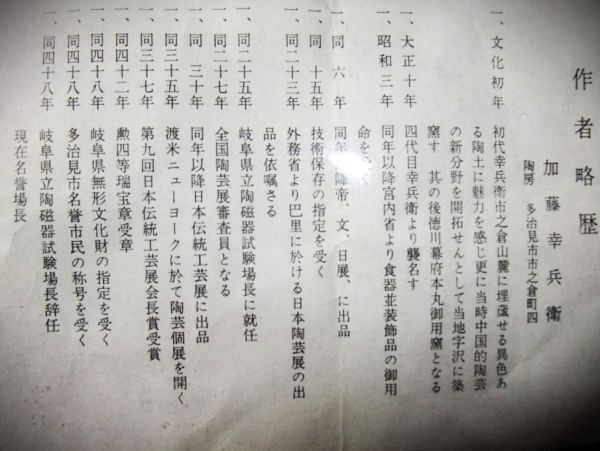 作者略歴
加藤幸兵衛
陶房 多治見市市之倉町四
一、文化初年 初代幸兵衛市之倉山麓に埋蔵せる異色あ
る陶土に魅力を感じ更に当時中国的陶芸
の新分野を開拓せんとして当地字沢に築
窯す 其の後徳川幕府本丸御用窯となる
一、大正十年 四代目幸兵衛より襲名す
一、昭和三年 同年以降宮内省より食器並装飾品の御用
命を受く
一、同 六 年 同年以降帝、文、日展、に出品
一、同 十五年 技術保存の指定を受く
一、同二十三年 外務省より巴里に於ける日本陶芸展の出
品を依嘱さる
一、同二十五年 岐阜県立陶磁器試験場長に就任
一、同二十七年 全国陶芸展審査員となる
一、同 三十年 同年以降日本伝統工芸展に出品
一、同三十五年 渡米ニューヨークに於て陶芸個展を開く
一、同三十七年 第九回日本伝統工芸展会長賞受賞
一、同四十二年 勲四等瑞宝章受章
一、同四十八年 岐阜県無形文化財の指定を受く
一、同四十八年 多治見市名誉市民の称号を受く
一、同四十八年 岐阜県立陶磁器試験場長辞任
現在名誉場長